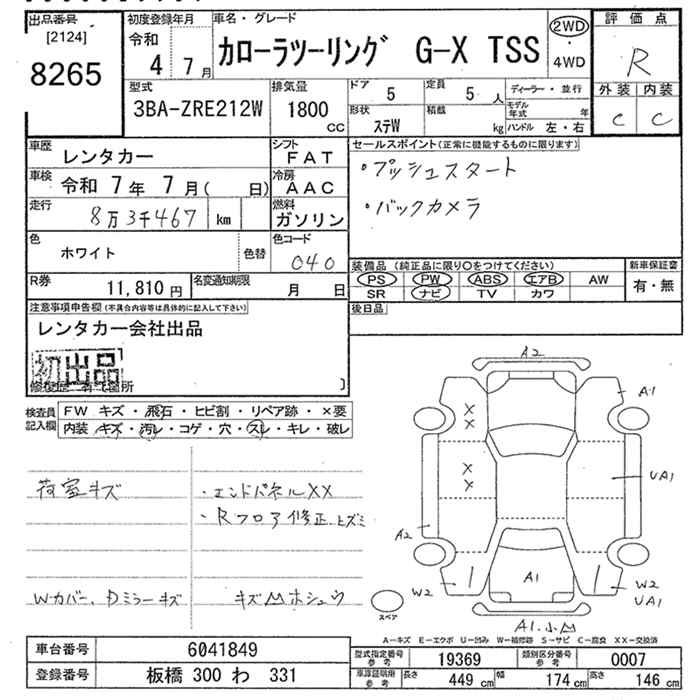 出品番号
[2124]
8265
初度登録年月
令和
4 7月
車名・グレード
カローラツーリング G-X TSS
2WD
・
4WD
評価点
R
外装 内装
C C
型式
3BA-ZRE212W
排気量
1800
CC
ドア
5
定員
5 人
形状
ステW
積載
kg
ディーラー・並行
モデル年式 年
ハンドル 左・右
車歴
レンタカー
シフト
FAT
車検
令和 7年 7月( 日)
冷房
AAC
走行
8万3千467 km
燃料
ガソリン
色
ホワイト
色替
色コード
040
R券
11,810 円
名変通知期限
月 日
セールスポイント(正常に機能するものに限ります)
・プッシュスタート
・バックカメラ
装備品 (純正品に限り○をつけてください)
PS PW ABS エアB AW
SR ナビ TV カワ
新車保証書
有・無
後日品
注意事項申告欄(不具合内容等は具体的に記入して下さい)
レンタカー会社出品
初出品
検査員
記入欄
FW キズ・飛石・ヒビ割・リペア跡・×要
内装 キズ・汚レ・コゲ・穴・スレ・キレ・破レ
荷室キズ
・エンドパネルXX
・Rフロア修正、ヒズミ
Wカバー、Dミラーキズ
キズ凹ホシュウ
A2
A1
X
X
X
X
UA1
A2
W2
A1
W2
UA1
スペア
A1.小凹
A-キズ E-エクボ U-凹み W-補修跡 S-サビ C-腐食 XX-交換済
車台番号
6041849
登録番号
板橋 300 わ 331
型式指定番号
参考
19369
類別区分番号
参考
0007
車庫証明用
参考
長さ
449 cm
幅
174 cm
高さ
146 cm